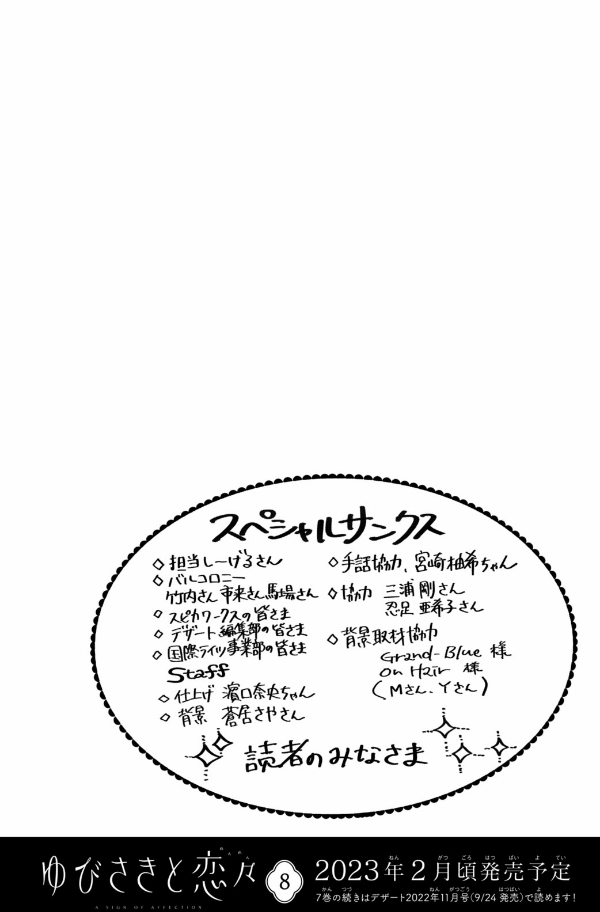 スペシャルサンクス
◇担当しーげるさん
◇バルコロニー
竹内さん市来さん馬場さん
◇スピカワークスの皆さま
◇デザート編集部の皆さま
◇国際ライツ事業部の皆さま
Staff
◇仕上げ 濵口奈央ちゃん
◇背景 蒼居さやさん
◇手話協力、宮崎柚希ちゃん
◇協力 三浦剛さん
忍足亜希子さん
◇背景取材協力
Grand-Blue 様
On Hair 様
(Mさん、Yさん)
読者のみなさま
ゆびさきと恋々 8
A SIGN OF AFFECTION
2023年2月頃発売予定
7巻の続きはデザート2022年11月号(9/24発売)で読めます!